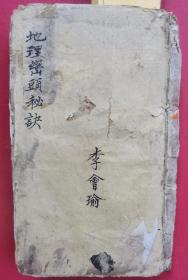 地理巒頭秘訣
李會瑜